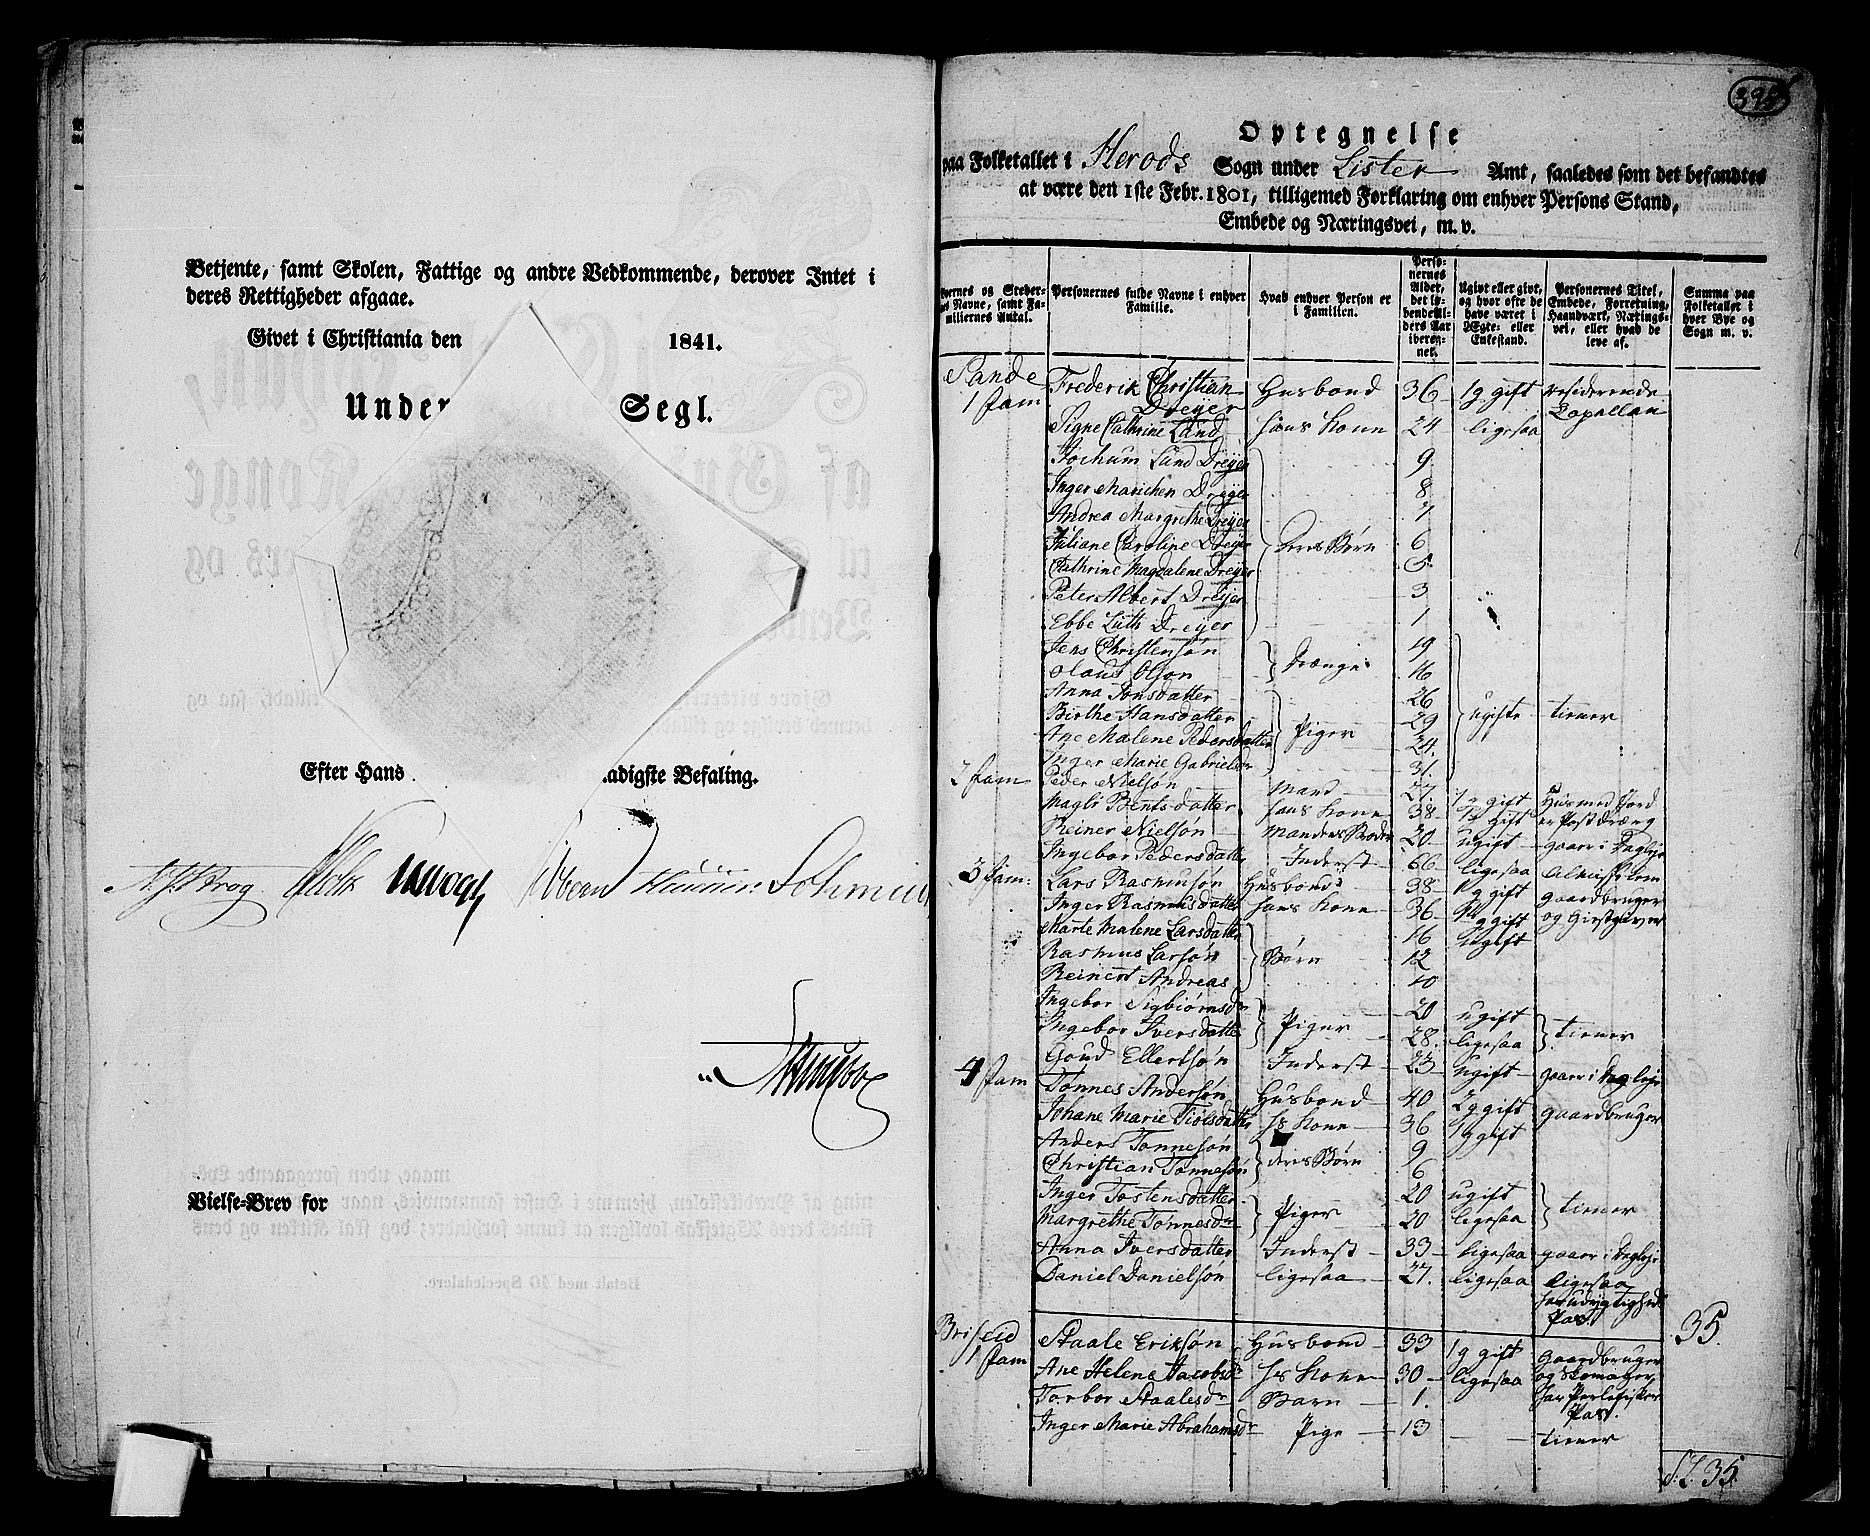 Betjente, samt Skolen, Fattige og andre Vedkommende, derover Intet i
deres Rettigheder afgaae.
Givet i Christiania den 1841.
Under Segl.
Efter Hans adigste Befaling.
Vielse-Brev for
395
Optegnelse
paa Folketallet i Herods Sogn under Lister Amt, saaledes som det befandtes
at være den 1ste Febr. 1801, tilligemed Forklaring om enhver Persons Stand,
Embede og Næringsvei, m. v.
Personernes fulde Navne i enhver Familie.
Hvad enhver Person er i Familien.
Personernes Alder, det lybende Alders Aar iberegnet.
Ugivt eller givt, og hvor ofte de have været i Ægte- eller Enkestand.
Personernes Titel, Embede, Forretning, Haandværk, Næringsvei, eller hvad de leve af.
Summa paa Folketallet i hver Bye og Sogn m. v.
Sande 1 fam Frederik Christian Dreyer Husbond 36 1g gift residerende Capellan
Signe Cathrine Lund hans Kone 24 ligesaa
Jochum Lund Dreyer 9
Inger Marichen Dreyer 8
Andrea Margrethe Dreyer 7
Juliane Caroline Dreyer deres Børn 6
Cathrine Magdalene Dreyer 5
Peter Albert Dreyer 3
Ebbe Lüth Dreyer 1
Jens Christensøn 19
Olaus Olson Drenge 16
Anna Jonsdatter 26
Birthe Hansdatter 29 ugifte tiener
Ane Malene Pedersdatter Piger 24.
Inger Marie Gabrielsdr 31.
2 fam Peder Nielsøn Mand 27. 1g gift Husmed Jord
Magli Bentsdatter hans Kone 38 1g gift er Postdreng
Reiner Nielsøn Mandens Broder 20 ugift gaaer i Dagleje
Ingebor Pedersdatter Inderst 66 ligesaa Almisselem
3 fam: Lars Rasmusøn Husbond 38 1g gift gaardbruger
Inger Rasmusdatter hans Kone 36 1g gift og Giestgiver
Marte Malene Larsdatter 16 ugift
Rasmus Larsøn Børn 12
Reinert Andreas 10
Ingebor Sigbiørnsdr 20 ugift
Ingebor Iversdatter Piger 28. ligesaa tiener
Goud Ellertsøn Inderst 23 ugift gaaer i Dagleje
4 fam Tønnes Andersøn Husbond 40 2g gift gaardbruger
Johane Marie Tiølsdatter hs Kone 36 1g gift
Anders Tønnesøn 9
Christian Tønnesøn deres Børn 6
Inger Tostensdatter 20 ugift
Margrethe Tønnesdr Piger 20 ligesaa tiener
Anna Iversdatter Inderst 33 ligesaa gaaer i Dagleje
Daniel Danielsøn ligesaa 27. ligesaa ligesaa
har udygtigheds Pas. 35.
Briseid 1 fam Staale Eriksøn Husbond 33 1g gift gaardbruger
Ane Helene Jacobsdr hs Kone 30 ligesaa og Skomager,
Torbor Staalesdr Barn 1. har Perlefisker Pas.
Inger Marie Abrahamsdr Pige 13 tiener
35